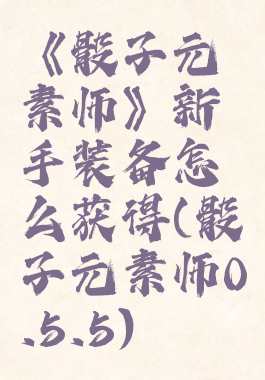 《骰子元
素师》新
手装备怎
么获得(骰
子元素师0
.5.5)